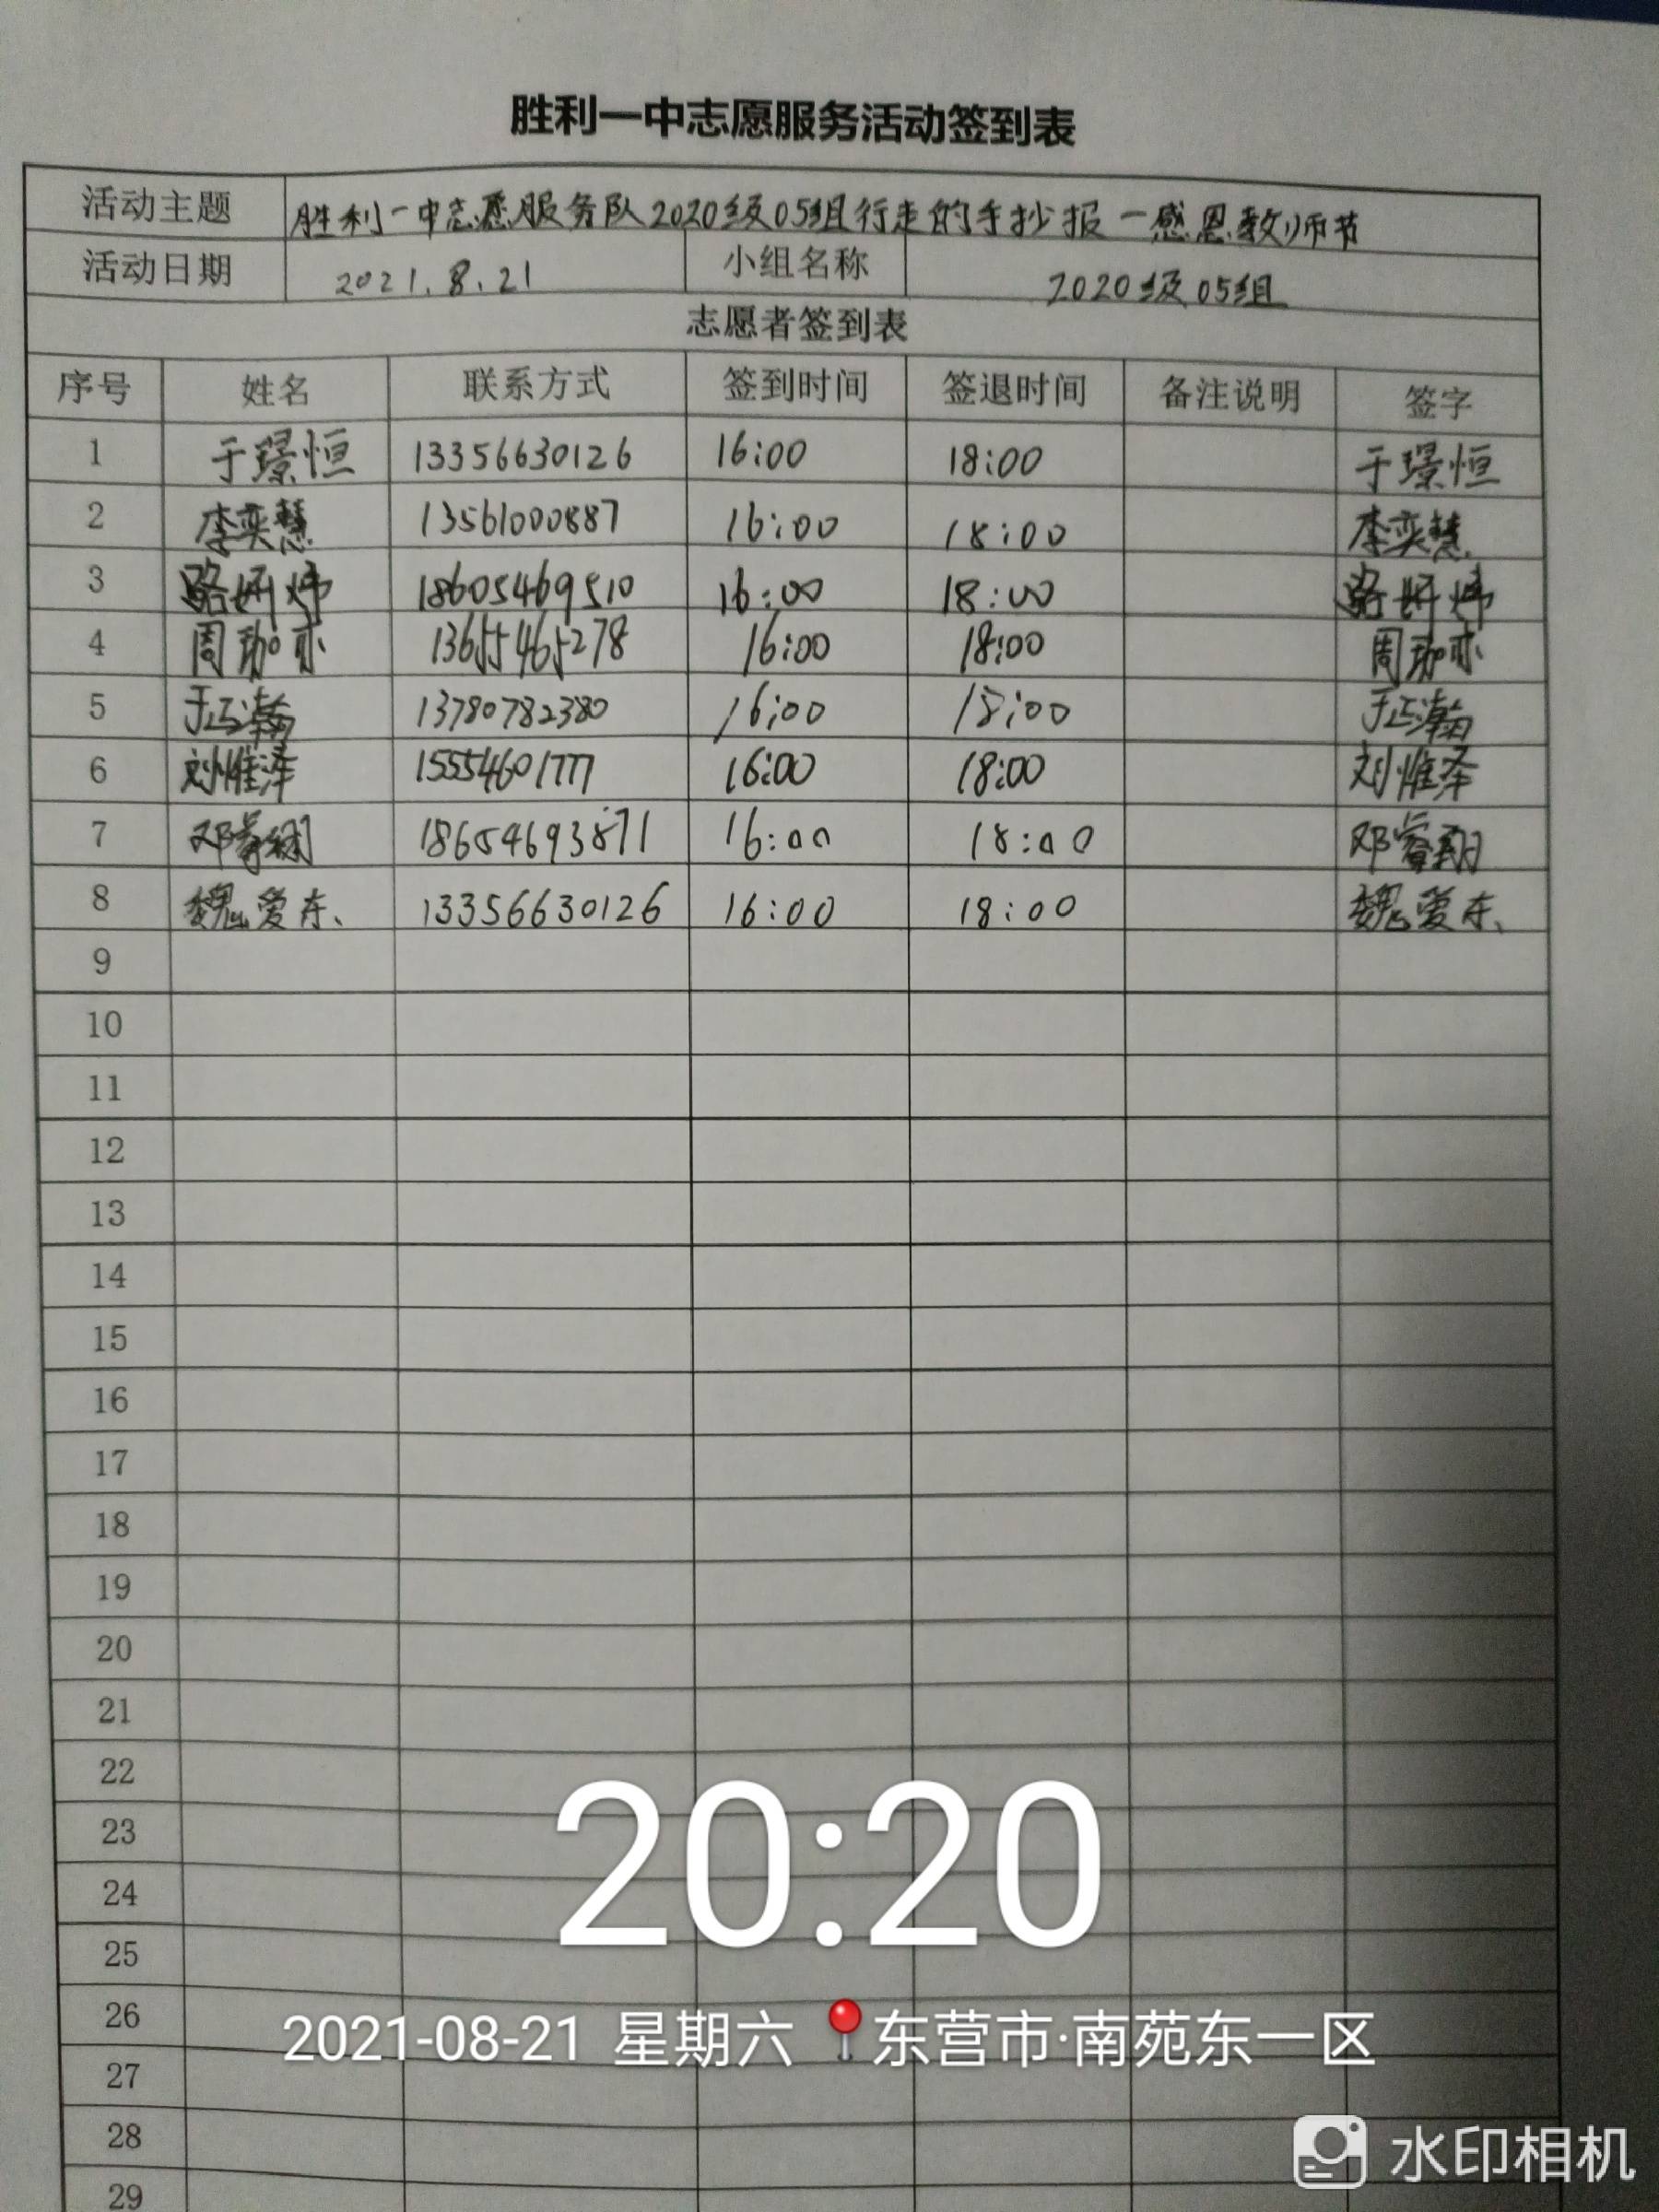 胜利一中志愿服务活动签到表
活动主题 胜利一中志愿服务队2020级05组行走的手抄报-感恩教师节
活动日期 2021.8.21 小组名称 2020级05组
志愿者签到表
序号 姓名 联系方式 签到时间 签退时间 备注说明 签字
1 于璟恒 13356630126 16:00 18:00 于璟恒
2 李奕慧 13561000887 16:00 18:00 李奕慧
3 路妍炜 18605469510 16:00 18:00 路妍炜
4 周珈亦 13655465278 16:00 18:00 周珈亦
5 于正瀚 13780782380 16:00 18:00 于正瀚
6 刘惟泽 15554601777 16:00 18:00 刘惟泽
7 邓睿翔 18654693871 16:00 18:00 邓睿翔
8 魏爱东、 13356630126 16:00 18:00 魏爱东、
9
10
11
12
13
14
15
16
17
18
19
20
21
22
23
24
25
26
27
28
29
20:20
2021-08-21 星期六 东营市·南苑东一区
水印相机